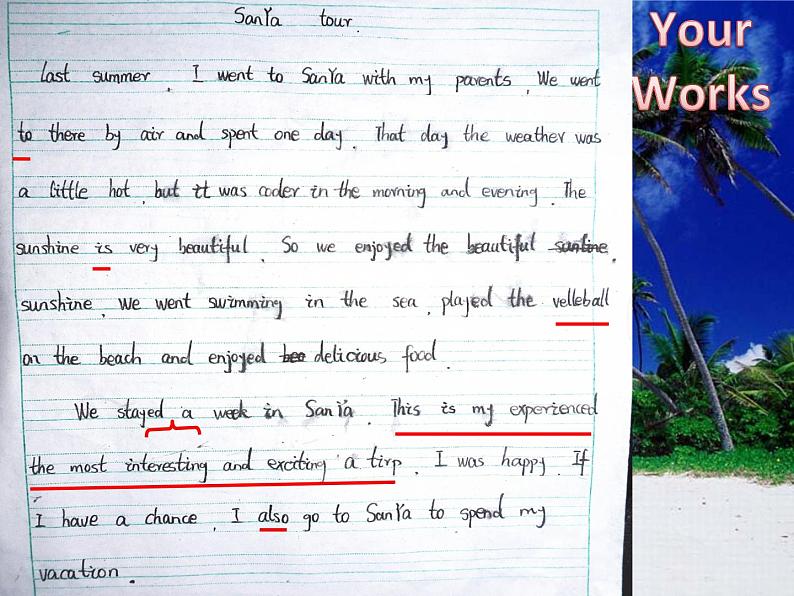 SanYa tour.
last summer, I went to SanYa with my parents, We went
to there by air and spent one day. That day the weather was
a little hot, but it was coder in the morning and evening. The
sunshine is very beautiful. So we enjoyed the beautiful
sunshine, we went swimming in the sea, played the velleball
on the beach and enjoyed delicious food.
We stayed a week in SanYa. This is my experienced
the most interesting and exciting a tirp. I was happy. If
I have a chance, I also go to SanYa to spend my
vacation.
Your
Works